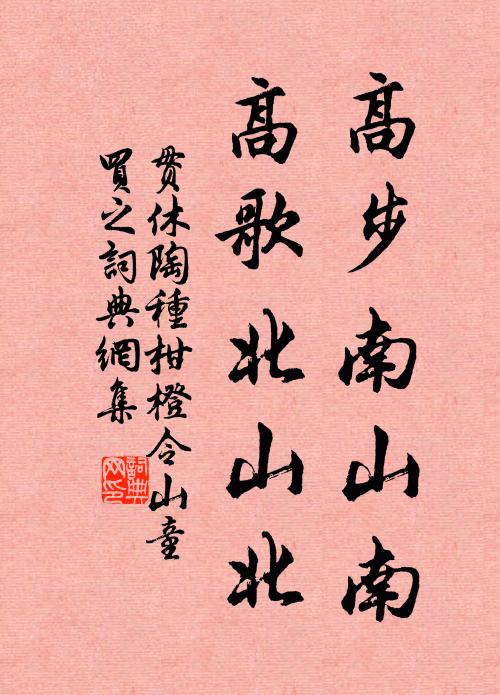 高步南山南
高歌北山北
贯休陶種柑橙令山童
買之詞典網集
詞典网印